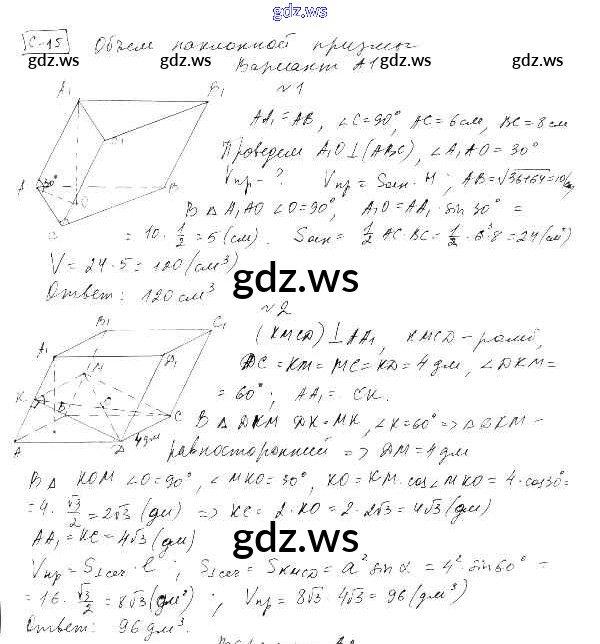 gdz.ws
С-15 Объем наклонной призмы
gdz.ws gdz.ws gdz.ws
Вариант А1
№1
A₁ B₁
AA₁ = AB, ∠C = 90°, AC = 6 см, BC = 8 см
B₁
Проведем A₁O ⊥ (ABC), ∠A₁AO = 30°
Vпр - ? Vпр = Sосн · H; AB = √36+64 = 10(см)
A 30° O B
В Δ A₁AO ∠O = 90°, A₁O = AA₁ · sin 30° =
= 10 · 1/2 = 5 (см). Sосн = 1/2 AC · BC = 1/2 · 6 · 8 = 24 (см²)
V = 24 · 5 = 120 (см³)
Ответ: 120 см³
gdz.ws
№2
B₁ C₁
(KMCD) ⊥ AA₁, KMCD - ромб,
A₁ D₁
M
DC = KM = MC = KD = 4 дм, ∠DKM =
= 60°; AA₁ = CK.
K B O C
В Δ DKM DK = MK, ∠K = 60° => Δ DKM -
A D 4 дм
равносторонний => DM = 4 дм
В Δ KOM ∠O = 90°, ∠MKO = 30°, KO = KM · cos∠MKO = 4 · cos30° =
= 4 · √3/2 = 2√3 (дм) => KC = 2 · KO = 2 · 2√3 = 4√3 (дм)
gdz.ws gdz.ws gdz.ws
AA₁ = KC = 4√3 (дм)
Vпр = S⊥сеч · l; S⊥сеч = SKMCD = a² sin α = 4² · sin60° =
= 16 · √3/2 = 8√3 (дм²); Vпр = 8√3 · 4√3 = 96 (дм³)
Ответ: 96 дм³.
gdz.ws